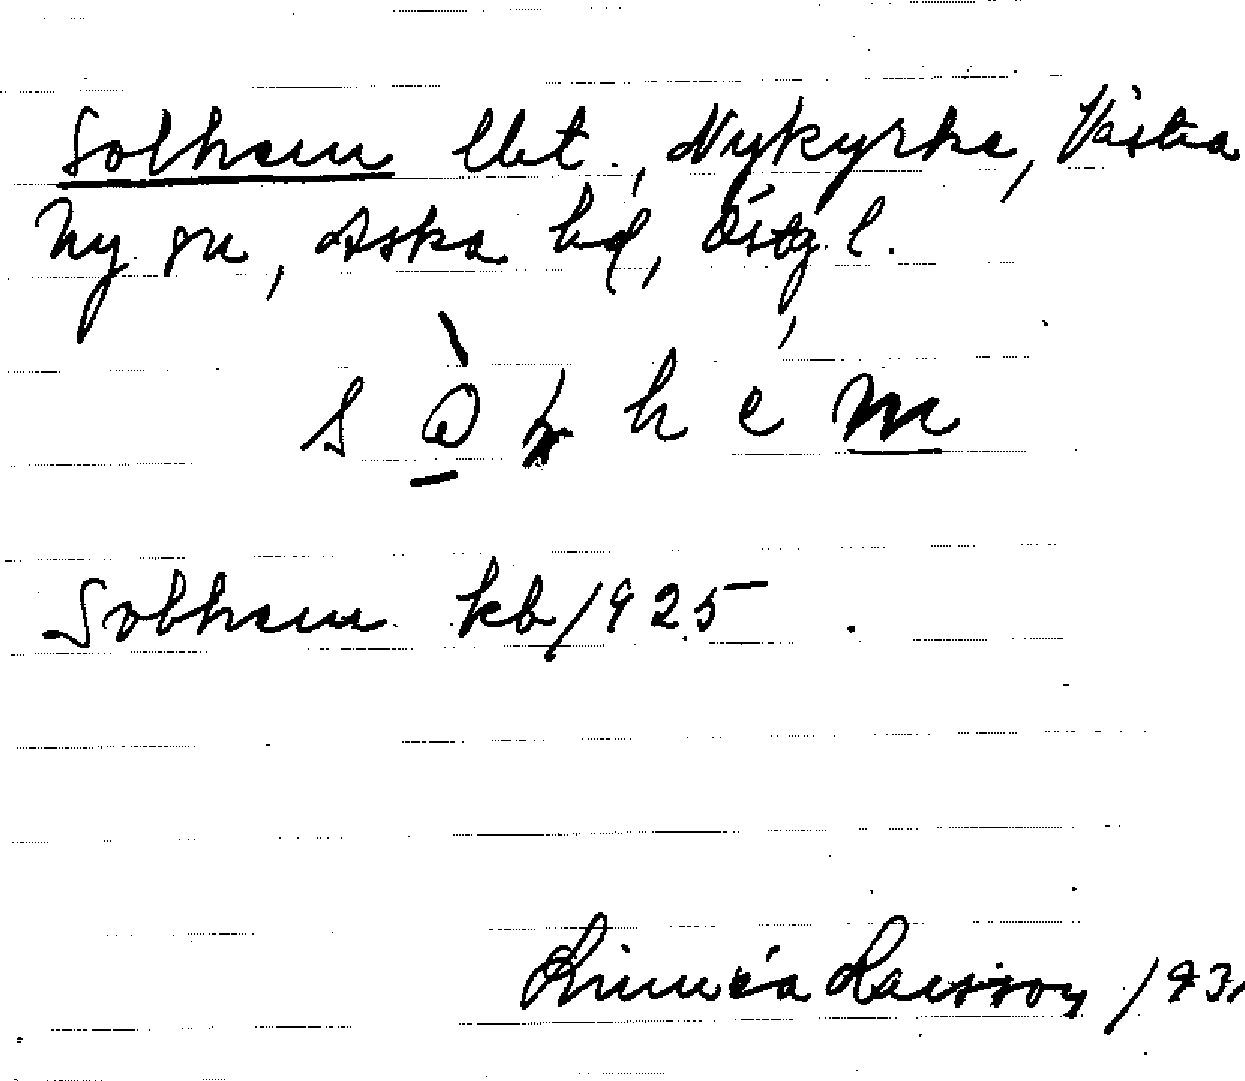 Solhem lht., Nykyrka, Västra
Ny sn, Aska hd, Östg. l.
Solhem kb 1925
Linnéa Larsson 193